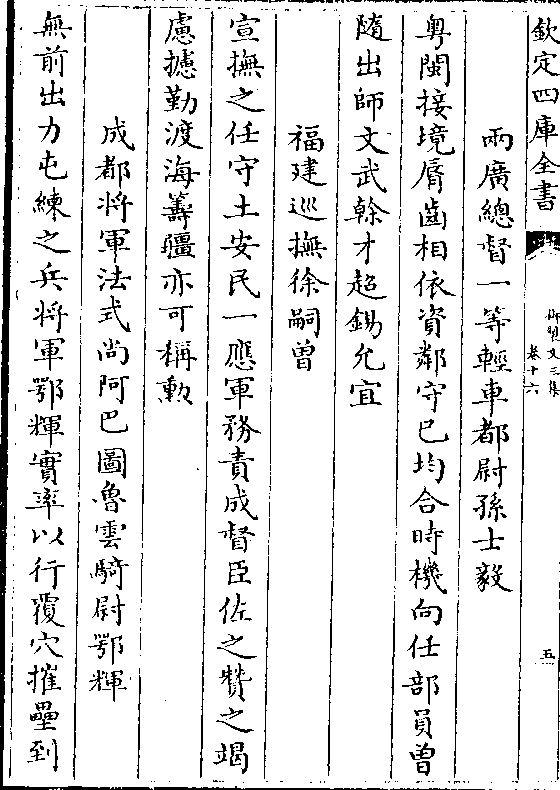 欽定四庫全書
御製文三集
卷十六
五
兩廣總督一等輕車都尉孫士毅
粵閩接境脣齒相依資鄰守已均合時機向任部員曾
隨出師文武幹才超錫允宜
福建巡撫徐嗣曾
宣撫之任守土安民一應軍務責成督臣佐之贊之竭
慮攄勤渡海籌疆亦可稱勲
成都將軍法式尚阿巴圖魯雲騎尉鄂輝
無前出力屯練之兵將軍鄂輝實率以行覆穴摧壘到